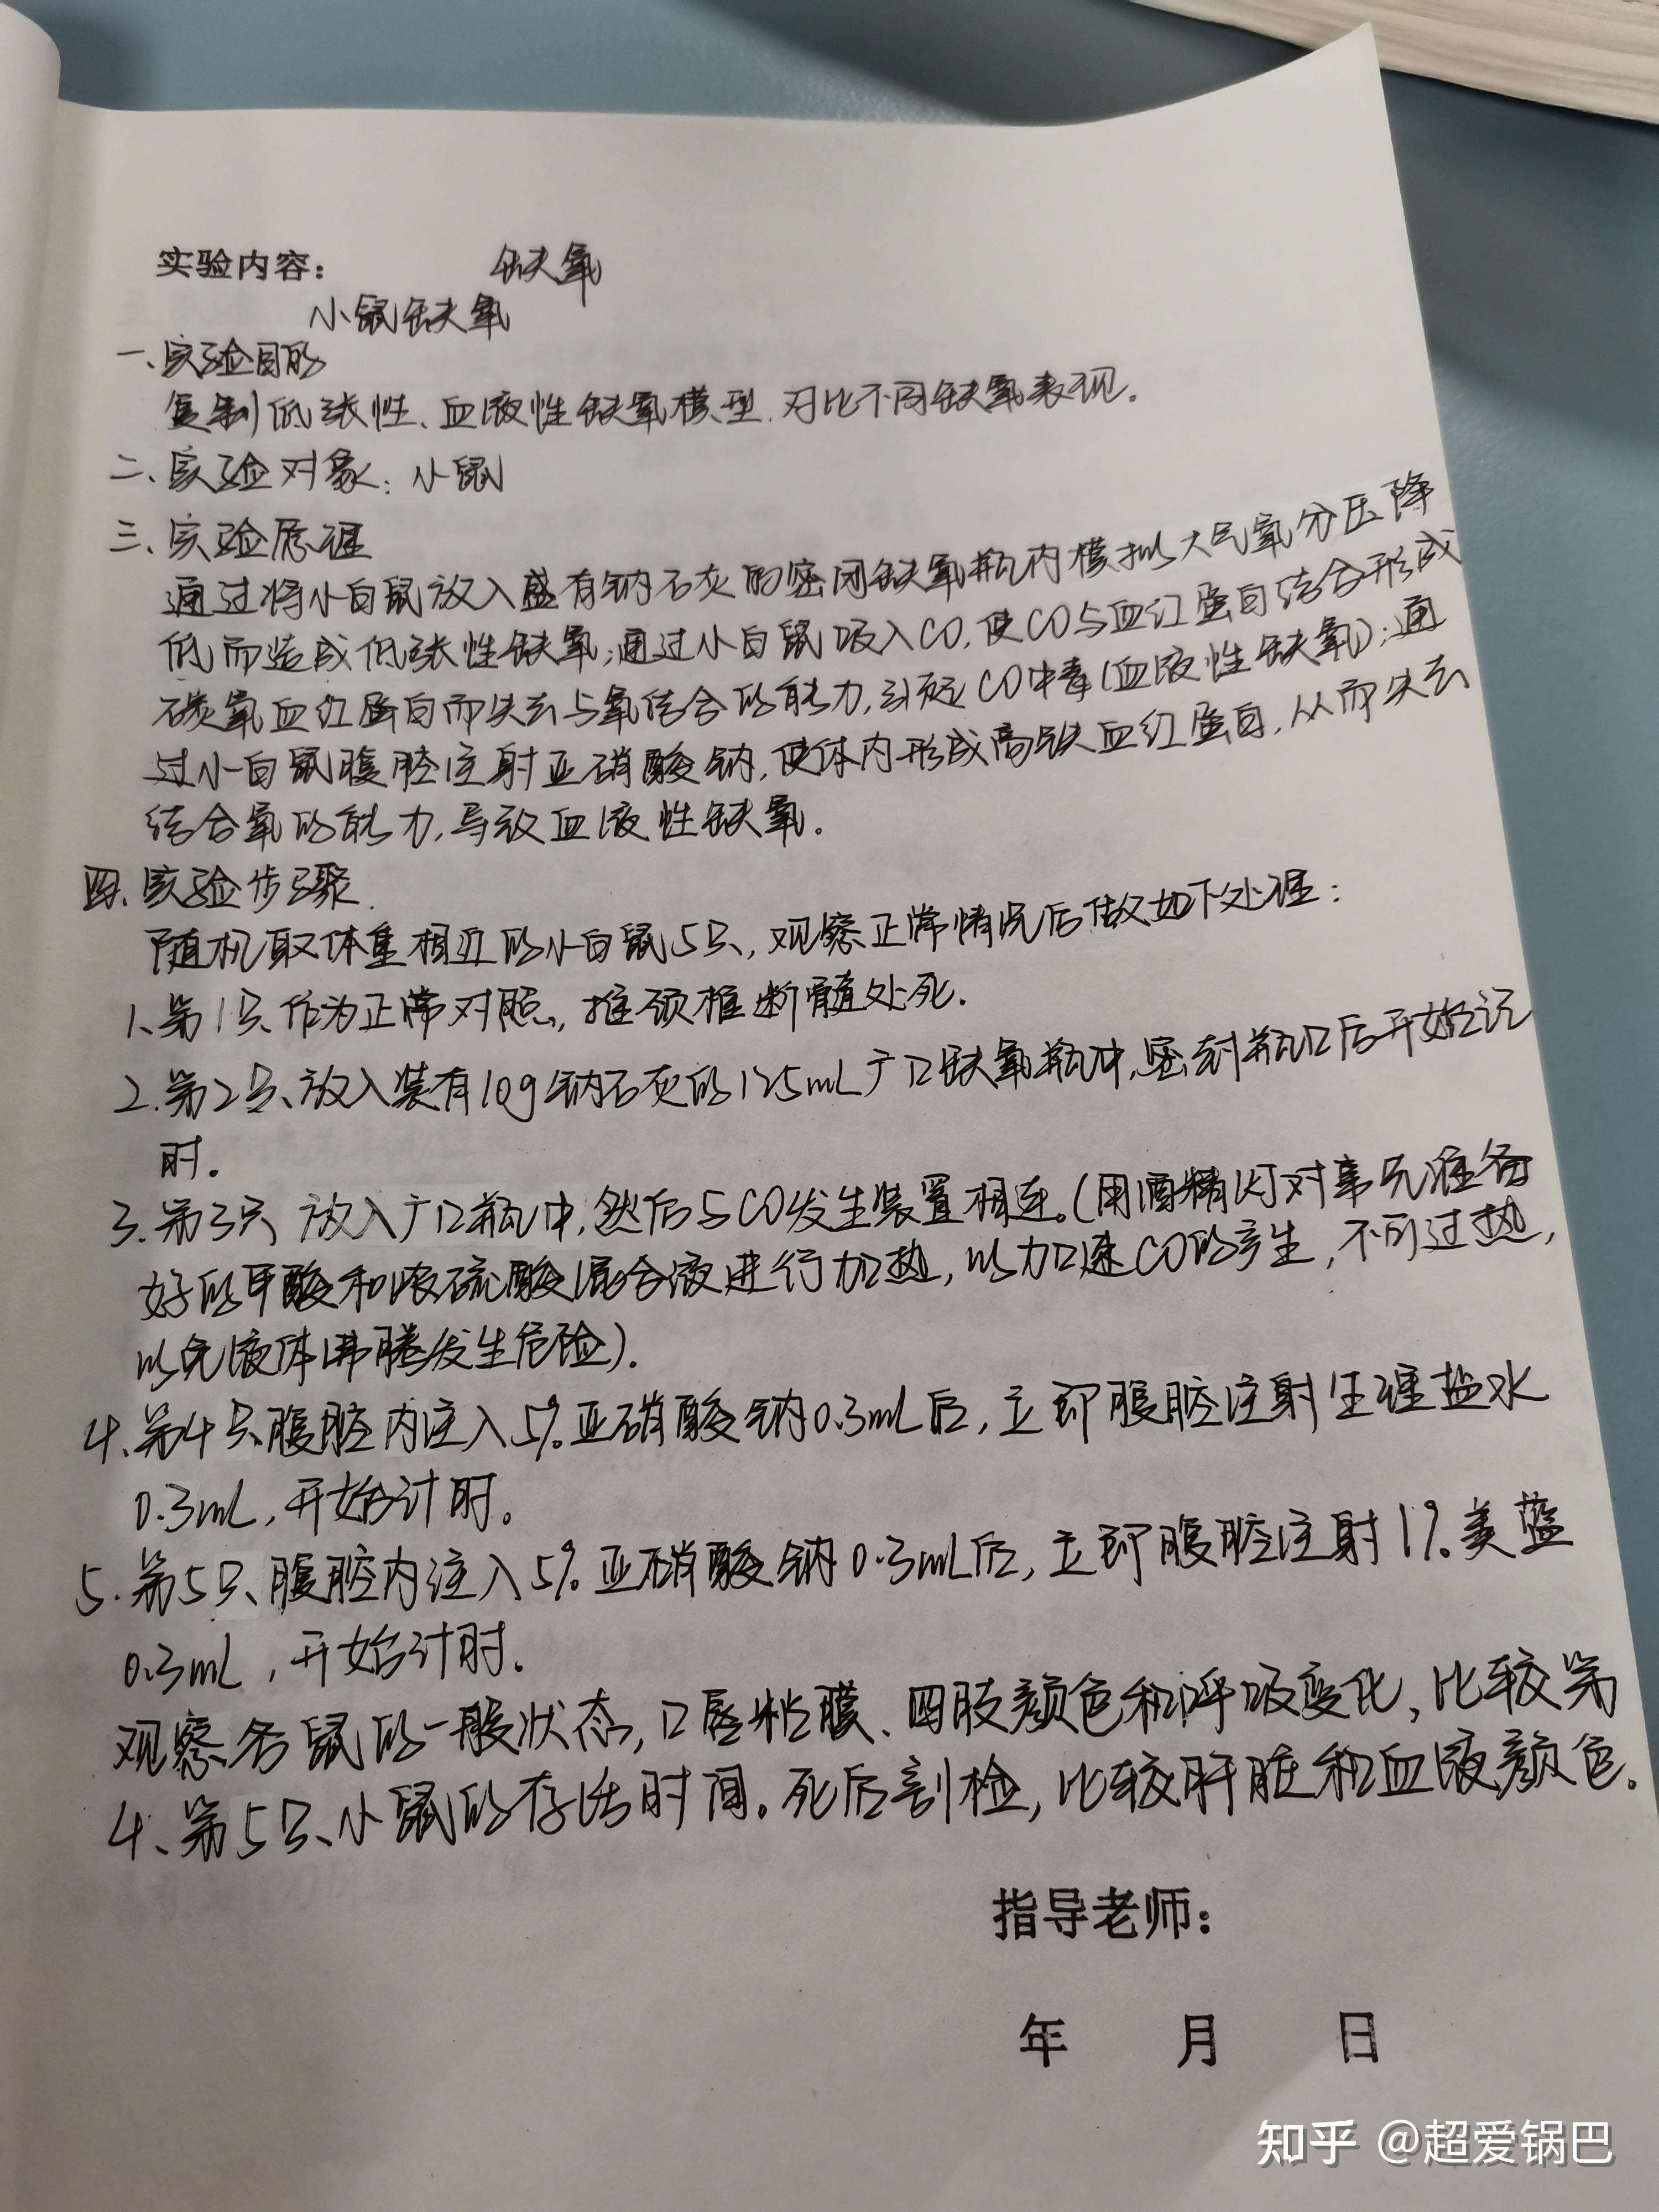 实验内容： 缺氧
小鼠缺氧
一、实验目的
复制低张性、血液性缺氧模型.对比不同缺氧表现。
二、实验对象：小鼠
三、实验原理
通过将小白鼠放入盛有钠石灰的密闭缺氧瓶内模拟大气氧分压降
低而造成低张性缺氧；通过小白鼠吸入CO,使CO与血红蛋白结合形成
碳氧血红蛋白而失去与氧结合的能力,引起CO中毒(血液性缺氧)；通
过小白鼠腹腔注射亚硝酸钠,使体内形成高铁血红蛋白,从而失去
结合氧的能力,导致血液性缺氧。
四、实验步骤.
随机取体重相近的小白鼠5只,观察正常情况后做如下处理：
1、第1只作为正常对照,推颈椎断髓处死.
2.第2只、放入装有10g钠石灰的125mL广口缺氧瓶中,密封瓶口后开始记
时。
3.第3只 放入广口瓶中,然后与CO发生装置相连。(用酒精灯对事先准备
好的甲酸和浓硫酸混合液进行加热,以加速CO的产生,不可过热,
以免液体沸腾发生危险).
4、第4只腹腔内注入5%亚硝酸钠0.3mL后,立即腹腔注射生理盐水
0.3mL,开始计时。
5.第5只、腹腔内注入5%亚硝酸钠0.3mL后,立即腹腔注射1%美蓝
0.3mL,开始计时.
观察各鼠的一般状态,口唇粘膜、四肢颜色和呼吸变化,比较第
4、第5只、小鼠的存活时间。死后剖检,比较肝脏和血液颜色。
指导老师：
年 月 日
知乎 @超爱锅巴